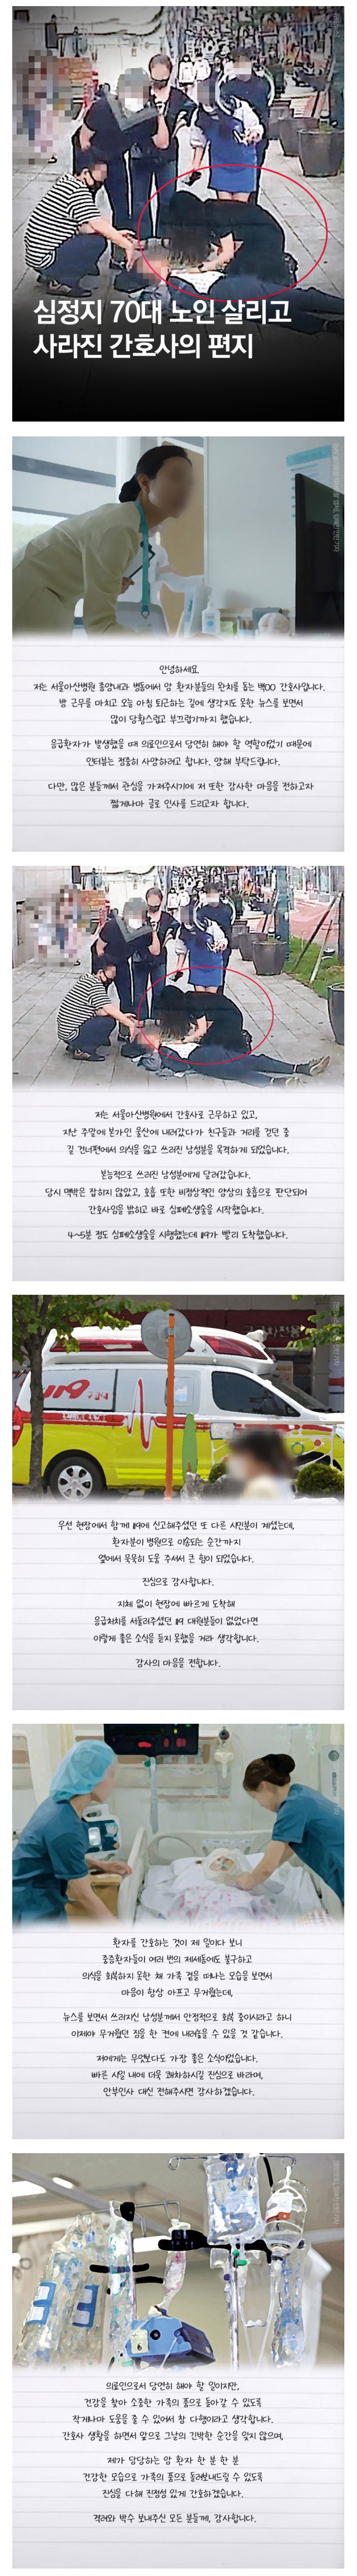 심정지 70대 노인 살리고
사라진 간호사의 편지
안녕하세요.
저는 서울아산병원 종양내과 병동에서 암 환자분들의 완치를 돕는 백00 간호사입니다.
밤 근무를 마치고 오늘 아침 퇴근하는 길에 생각지도 못한 뉴스를 보면서
많이 당황스럽고 부끄럽기까지 했습니다.
응급환자가 발생했을 때 의료인으로서 당연히 해야 할 역할이었기 때문에
인터뷰는 정중히 사양하려고 합니다. 양해 부탁드립니다.
다만, 많은 분들께서 관심을 가져주시기에 저 또한 감사한 마음을 전하고자
짧게나마 글로 인사를 드리고자 합니다.
저는 서울아산병원에서 간호사로 근무하고 있고,
지난 주말에 본가인 울산에 내려갔다가 친구들과 거리를 걷던 중
길 건너편에서 의식을 잃고 쓰러진 남성분을 목격하게 되었습니다.
본능적으로 쓰러진 남성분에게 달려갔습니다.
당시 맥박은 잡히지 않았고, 호흡 또한 비정상적인 양상의 호흡으로 판단되어
간호사임을 밝히고 바로 심폐소생술을 시작했습니다.
4~5분 정도 심폐소생술을 시행했는데 119가 빨리 도착했습니다.
119
우선 현장에서 함께 119에 신고해주셨던 또 다른 시민분이 계셨는데,
환자분이 병원으로 이송되는 순간까지
옆에서 묵묵히 도움 주셔서 큰 힘이 되었습니다.
진심으로 감사합니다.
지체 없이 현장에 빠르게 도착해
응급처치를 서둘러주셨던 119 대원분들이 없었다면
이렇게 좋은 소식을 듣지 못했을 거라 생각합니다.
감사의 마음을 전합니다.
환자를 간호하는 것이 제 일이다 보니
중증환자들이 여러 번의 제세동에도 불구하고
의식을 회복하지 못한 채 가족 곁을 떠나는 모습을 보면서
마음이 항상 아프고 무거웠는데,
뉴스를 보면서 쓰러지신 남성분께서 안정적으로 회복 중이시라고 하니
이제야 무거웠던 짐을 한 켠에 내려놓을 수 있을 것 같습니다.
저에게는 무엇보다도 가장 좋은 소식이었습니다.
빠른 시일 내에 더욱 쾌차하시길 진심으로 바라며,
안부인사 대신 전해주시면 감사하겠습니다.
의료인으로서 당연히 해야 할 일이지만,
건강을 찾아 소중한 가족의 품으로 돌아갈 수 있도록
작게나마 도움을 줄 수 있어서 참 다행이라고 생각합니다.
간호사 생활을 하면서 앞으로 그날의 긴박한 순간을 잊지 않으며,
제가 담당하는 암 환자 한 분 한 분
건강한 모습으로 가족의 품으로 돌려보내드릴 수 있도록
진심을 다해 진정성 있게 간호하겠습니다.
격려와 박수 보내주신 모든 분들께, 감사합니다.